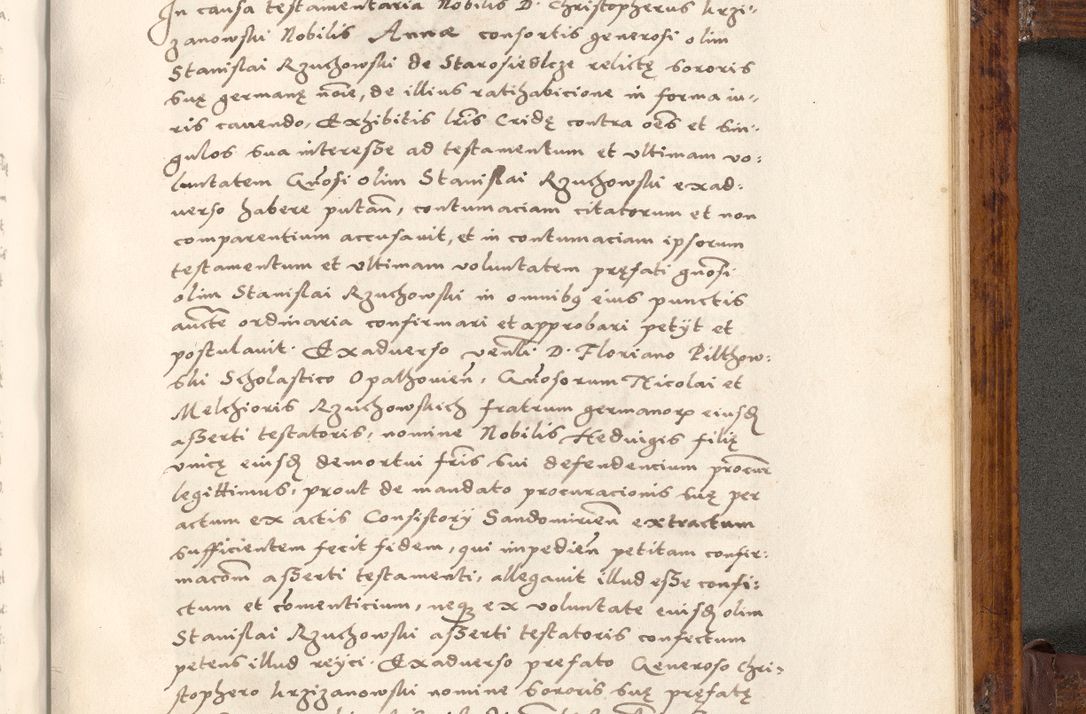 In causa testamentaria Nobilis D. Christopherus krzi-
zanowski Nobilis Annæ consortis generosi olim
Stanislai Rzuchowski de Starosiedlcze relictę sororis
suę germanę nõie, de illius ratihabicione in forma iu-
ris cavendo, Exhibitis lr̃is Cridę contra oẽs et sin-
gulos sua interesse ad testamentum et ultimam vo-
luntatem Gnosi olim Stanislai Rzuchowski exad-
uerso habere putañ, contumaciam citatorum et non
comparentium accusauit, et in contumaciam ipsorum
testamentum et ultimam voluntatem pręfati gnosi
olim Stanislai Rzuchowski in omnibq eius punctis
aucte ordinaria confirmari et approbari petijt et
postulauit. Exaduerso venli D. Floriano Pilthow-
ski Scholastico Opathovieñ, Gnosorum Nicolai et
Melchioris Rzuchowskich fratrum germanorp eiusd
asserti testatoris, nomine Nobilis Hedvigis filię
unicę eiusd demortui fr̃is sui defendencium procur
legittimus, prout de mandato procuracionis suę per
actum ex actis Consistorij Sandomirieñ extractum
sufficientem fecit fidem, qui impedieñ petitam confir-
macõm asserti testamenti, allegauit illud esse confi-
ctum et com̃enticium, neq ex voluntate eiusd olim
Stanislai Rzuchowski asserti testatoris confectum
petens illud reijci. Exaduerso prefato Generoso Chri-
stophero krzizanowski nomine sororis suę pręfatę